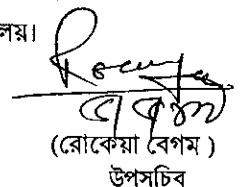 লয়।
(রোকেয়া বেগম )
উপসচিব